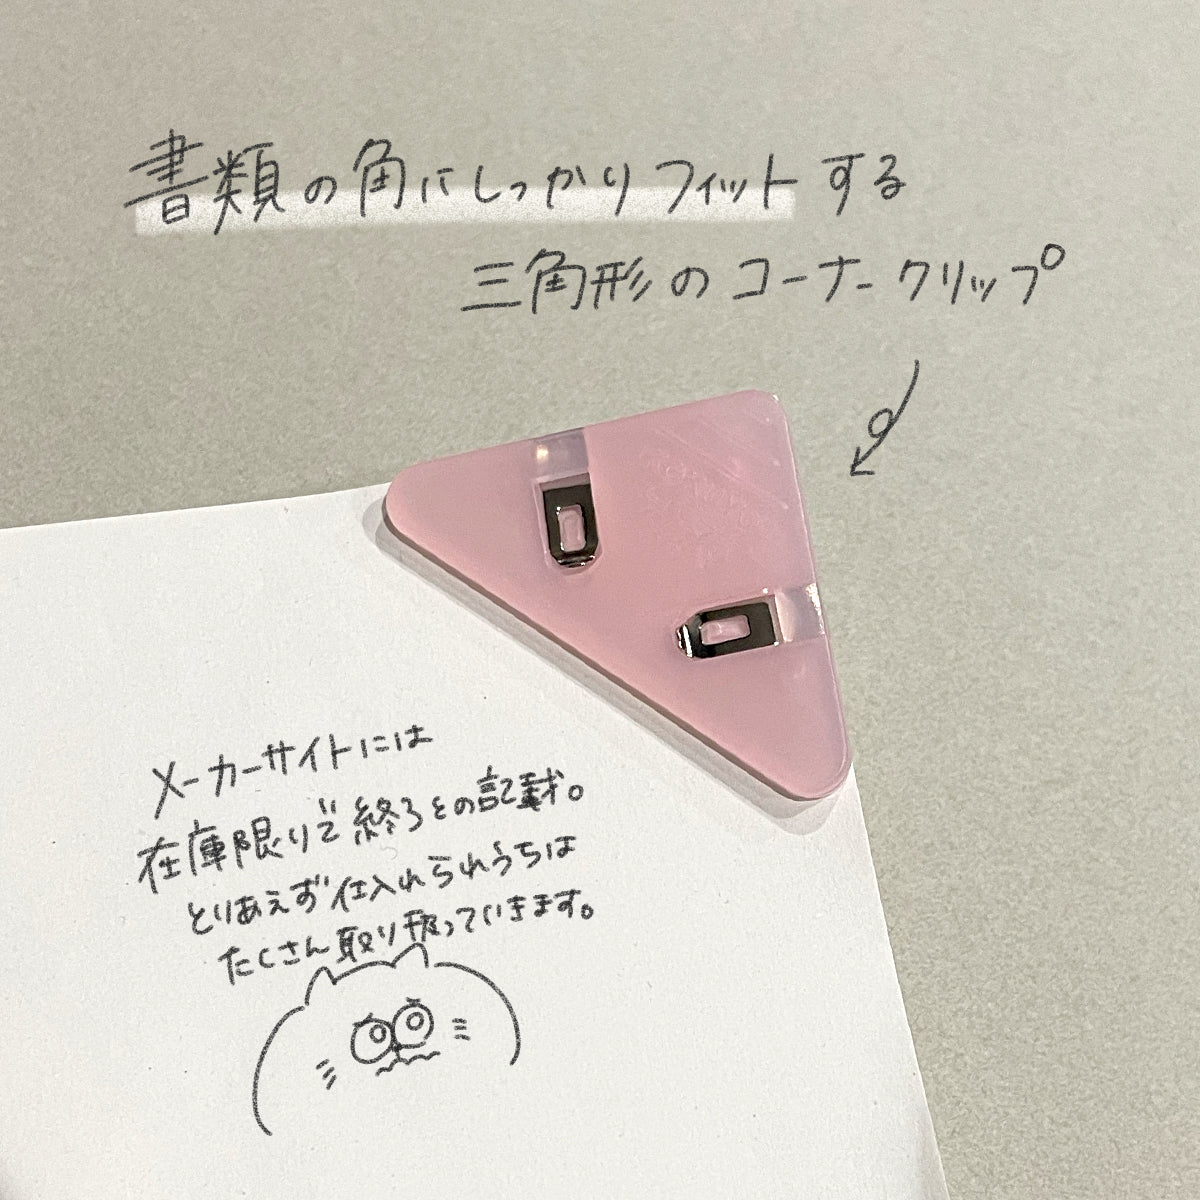 書類の角にしっかりフィットする
三角形のコーナークリップ
メーカーサイトには
在庫限りで終うとの記載。
とりあえず仕入れられるうちは
たくさん取り扱っていきます。